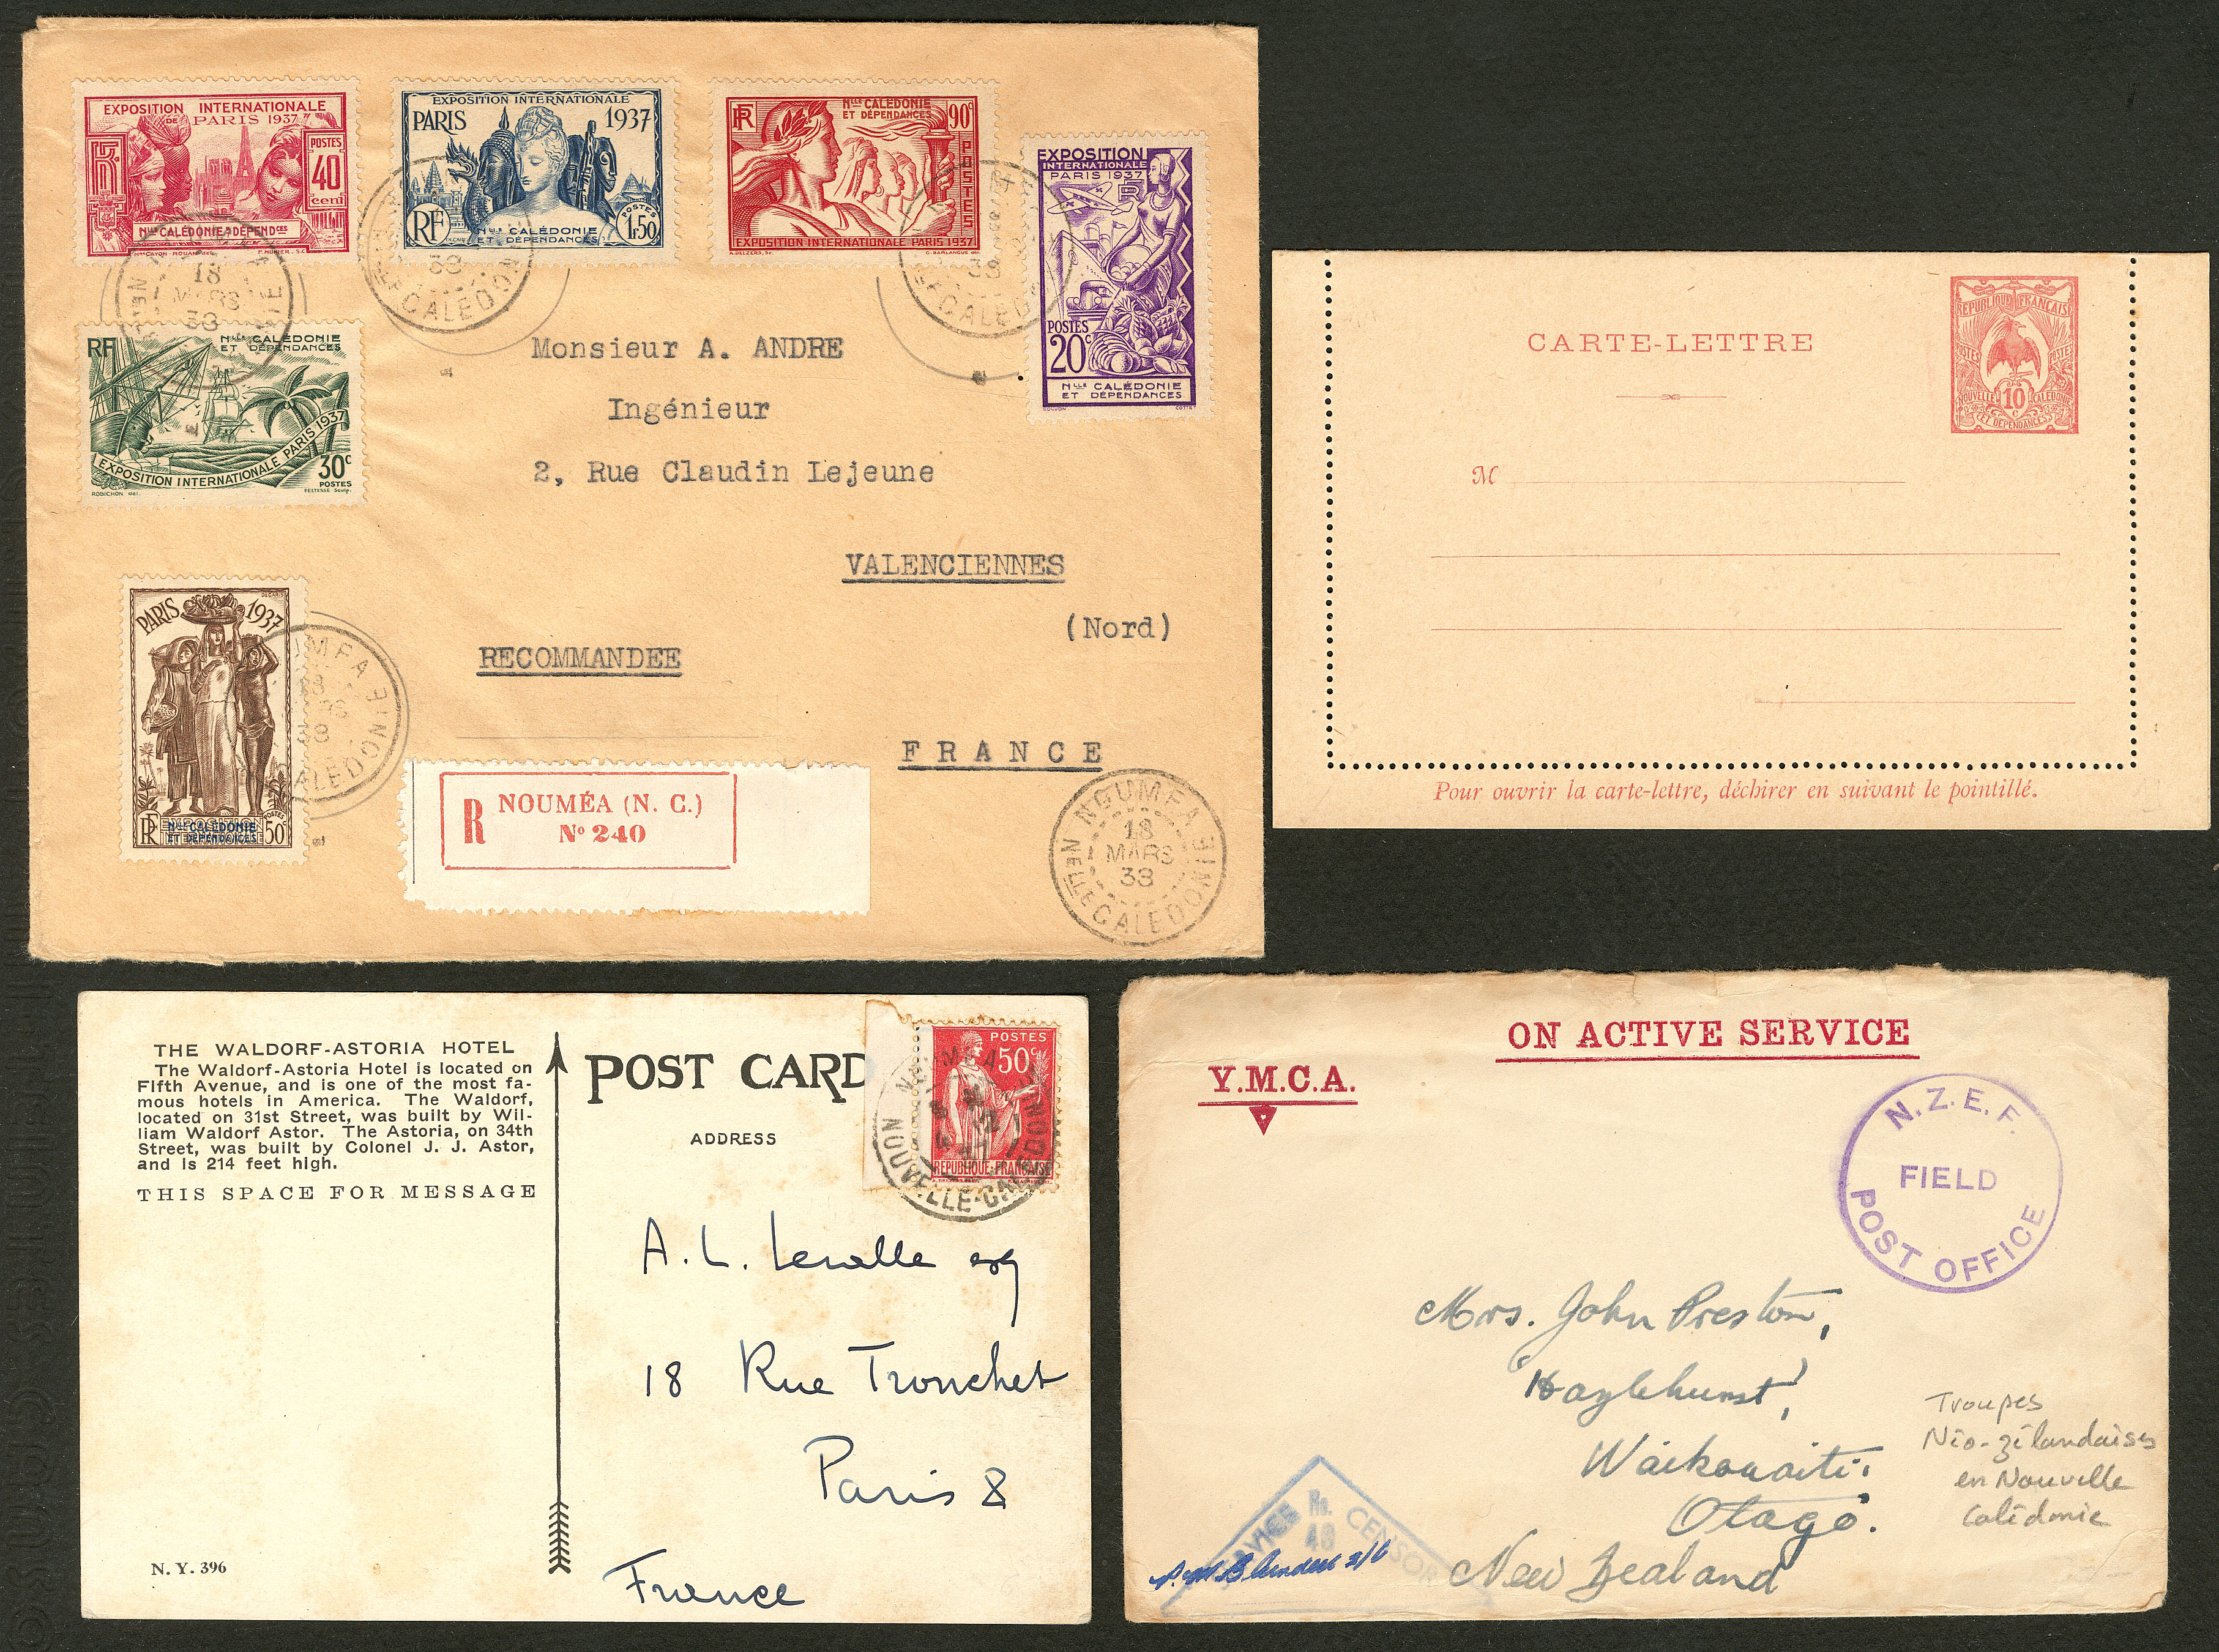 EXPOSITION INTERNATIONALE
DE PARIS 1937
RF
POSTES
40
cent
Nlle CALÉDONIE & DÉPENDces
EXPOSITION INTERNATIONALE
PARIS 1937
RF
Nlle CALÉDONIE
ET DÉPENDANCES
POSTES
1,50
RF
Nlle CALÉDONIE
ET DÉPENDANCES
90c
POSTES
EXPOSITION INTERNATIONALE PARIS 1937
EXPOSITION
INTERNATIONALE
PARIS 1937
RF
POSTES
20c
Nlle CALÉDONIE
ET DÉPENDANCES
18
MARS
38
RF
Nlle CALÉDONIE
ET DÉPENDANCES
EXPOSITION INTERNATIONALE PARIS 1937
30c
POSTES
ROBICHON del.
Monsieur A. ANDRE
Ingénieur
2, Rue Claudin Lejeune
VALENCIENNES
(Nord)
RECOMMANDEE
FRANCE
PARIS 1937
DECARIS
RF
Nlle CALÉDONIE
ET DÉPENDANCES
POSTES
50c
R
NOUMÉA (N. C.)
No 240
NOUMEA
18
MARS
38
NELLE CALEDONIE
CARTE-LETTRE
REPUBLIQUE FRANÇAISE
POSTES POSTES
NOUVELLE 10 c CALEDONIE
ET DEPENDANCES
M
Pour ouvrir la carte-lettre, déchirer en suivant le pointillé.
THE WALDORF-ASTORIA HOTEL
The Waldorf-Astoria Hotel is located on
Fifth Avenue, and is one of the most fa-
mous hotels in America. The Waldorf,
located on 31st Street, was built by Wil-
liam Waldorf Astor. The Astoria, on 34th
Street, was built by Colonel J. J. Astor,
and is 214 feet high.
THIS SPACE FOR MESSAGE
N. Y. 396
POST CARD
ADDRESS
POSTES
50c
REPUBLIQUE FRANÇAISE
NOUMEA
NOUVELLE-CALEDONIE
A. L. Leralle esq
18 Rue Tronchet
Paris 8
France
ON ACTIVE SERVICE
Y.M.C.A.
N.Z.E.F.
FIELD
POST OFFICE
Mrs. John Preston,
'Haylehurst',
Waikouaiti,
Otago.
New Zealand
Troupes
Néo-zélandaises
en Nouvelle
Calédonie
No.
48
CENSOR